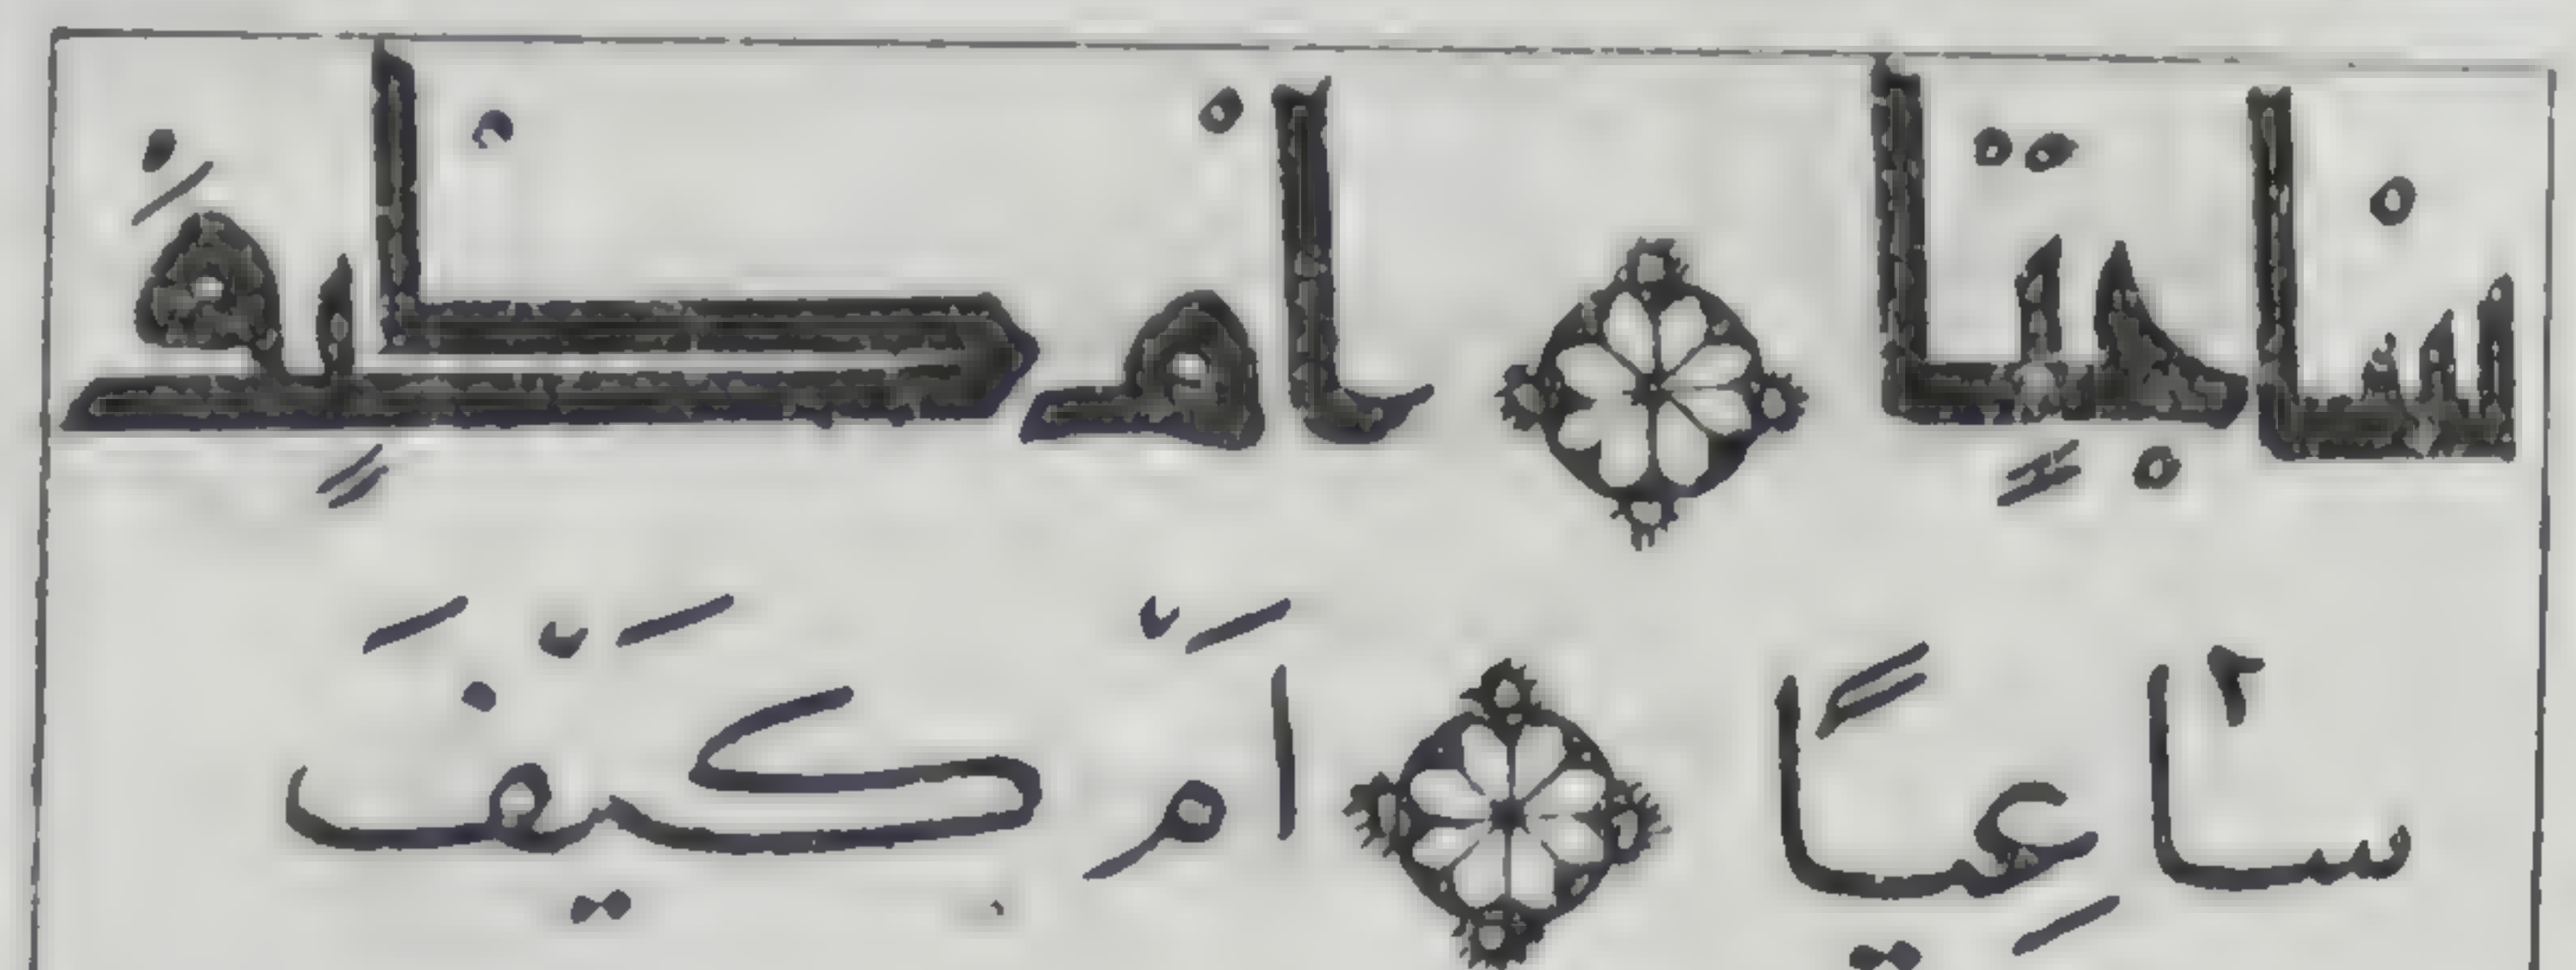 ساعيا ام كيف
سَاعِيًا امَّ كَيَّفَ